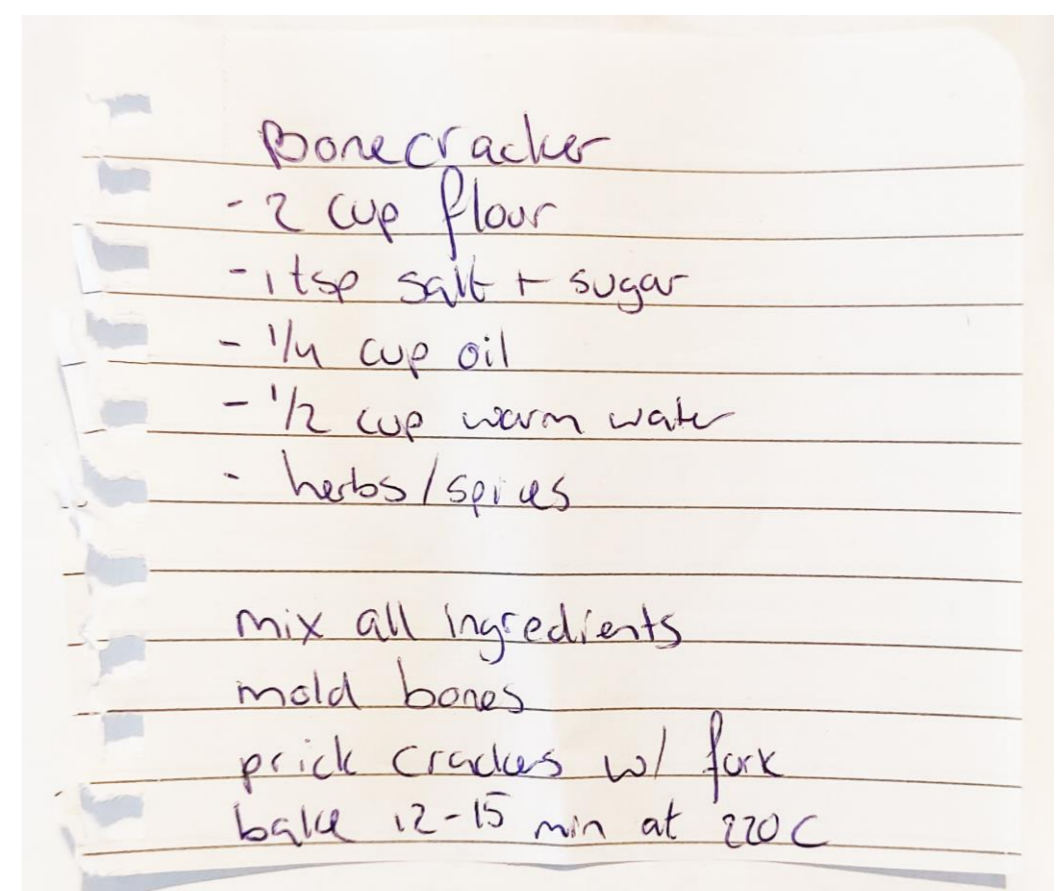 Bonecracker
- 2 cup flour
- 1 tsp salt + sugar
- 1/4 cup oil
- 1/2 cup warm water
- herbs/spices
mix all ingredients
mold bones
prick crackers w/ fork
bake 12-15 min at 220C